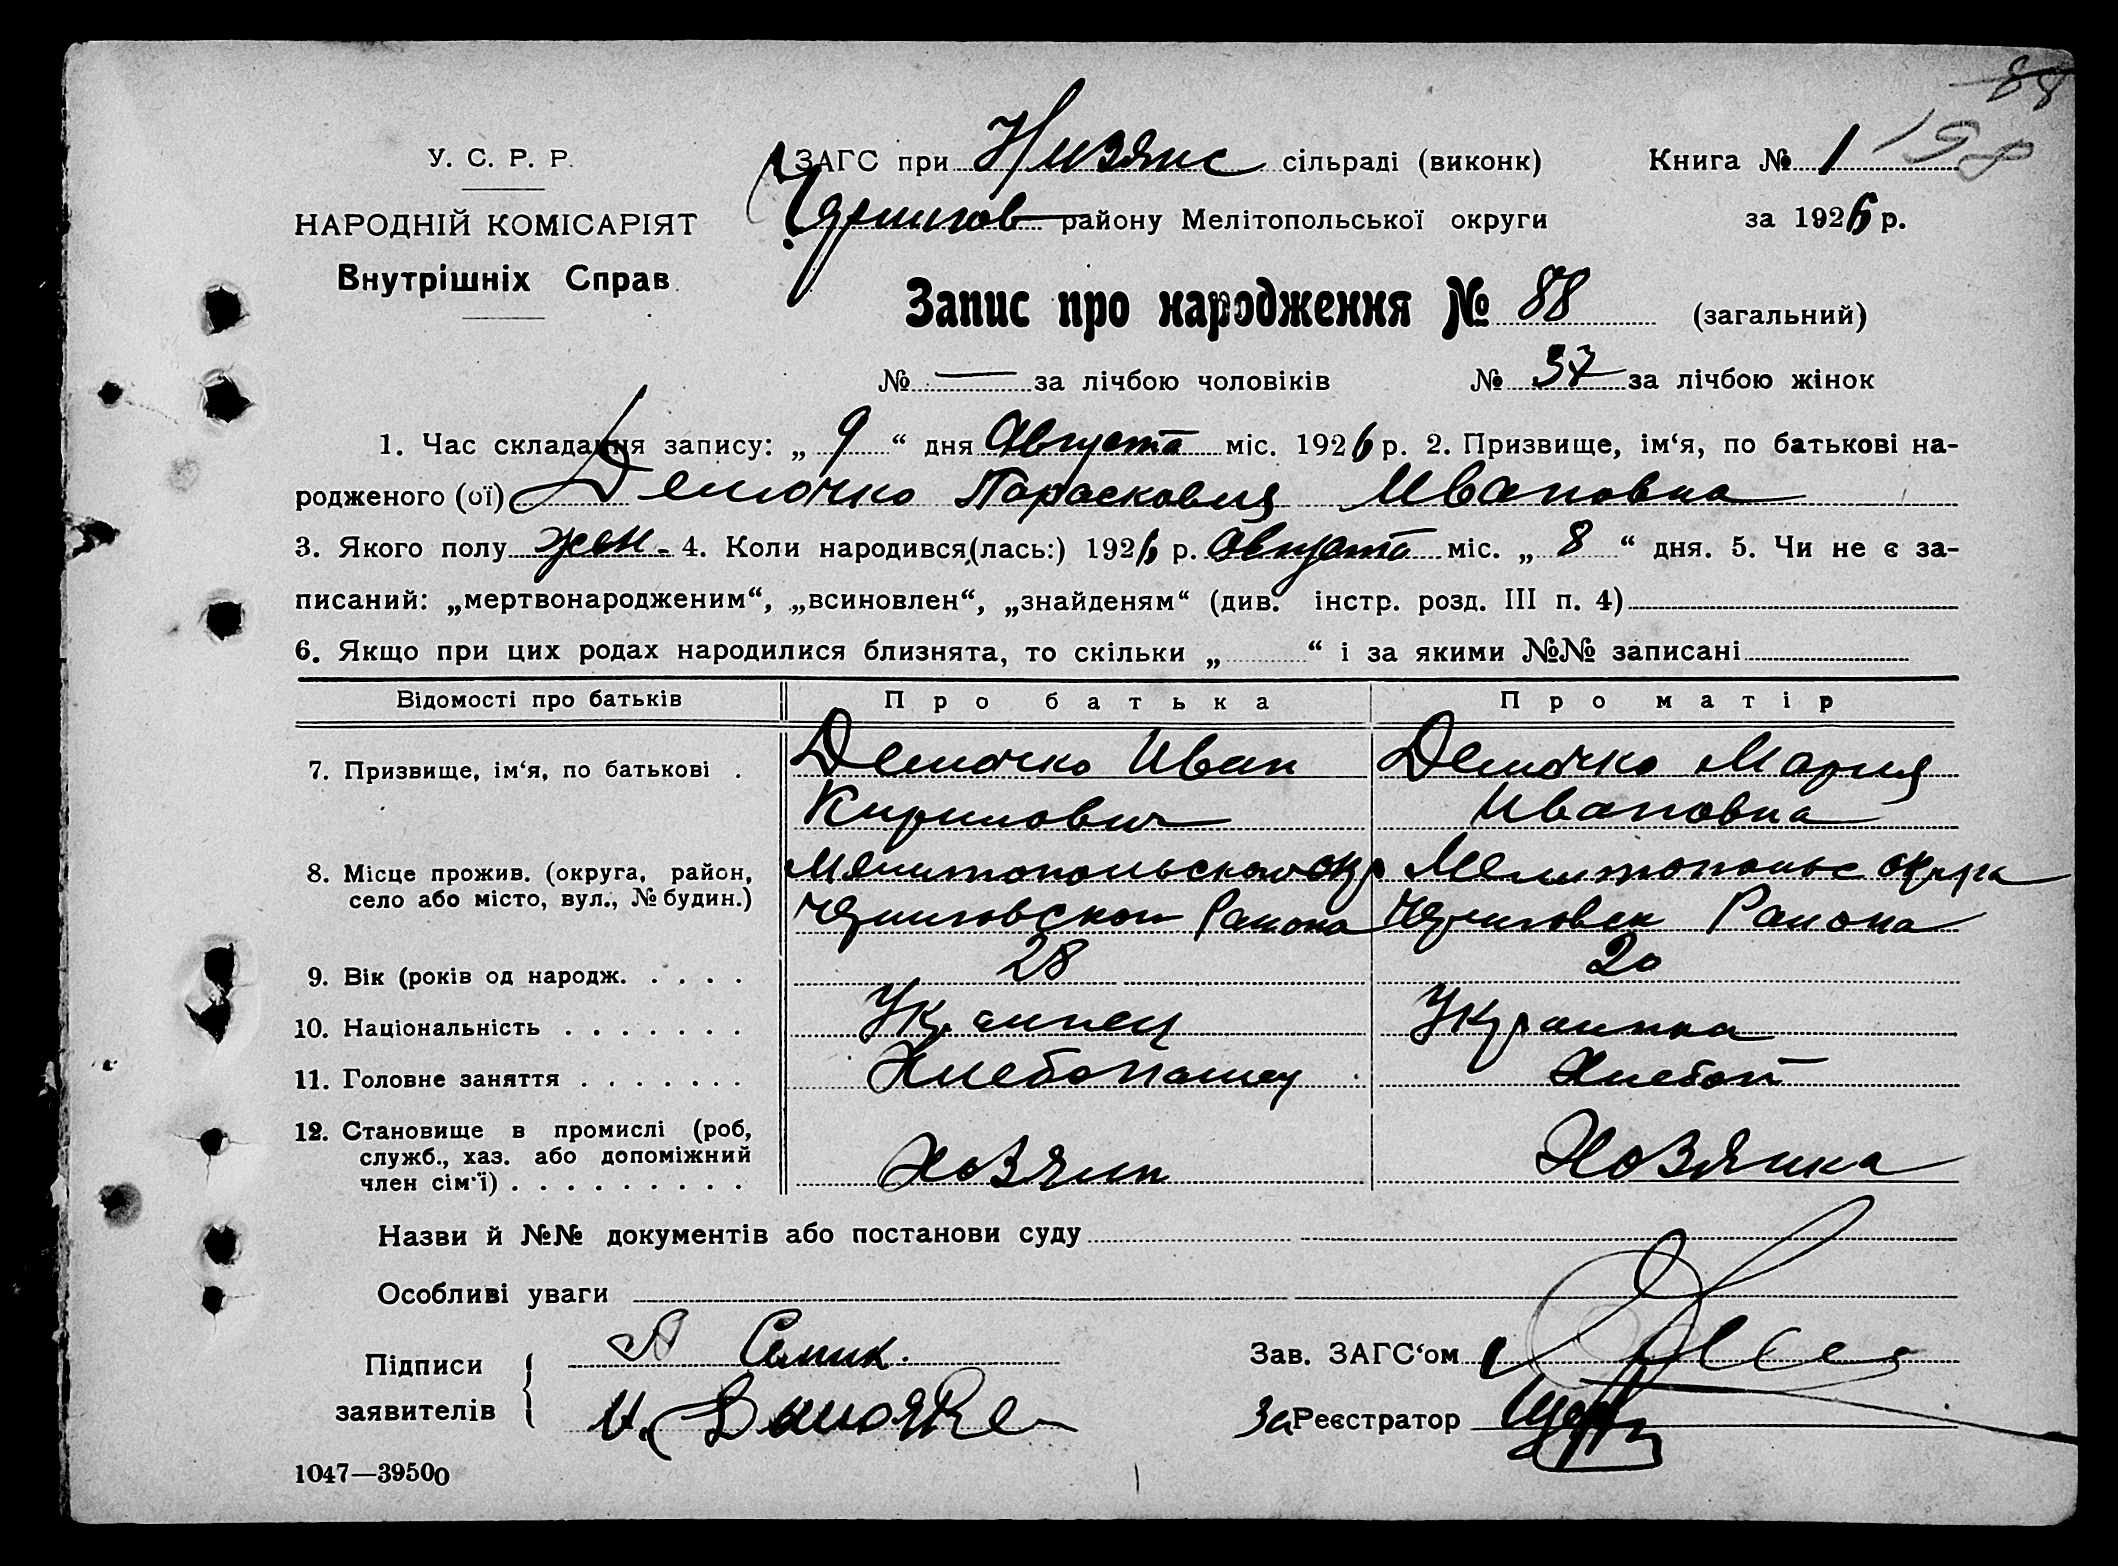 88
198
У. С. Р. Р.
НАРОДНІЙ КОМІСАРІЯТ
Внутрішніх Справ
ЗАГС при Низянс сільраді (виконк)
Книга № 1
Чернигов району Мелітопольської округи
за 1926 р.
Запис про народження № 88 (загальний)
№ — за лічбою чоловіків № 37 за лічбою жінок
1. Час складання запису: „ 9 “ дня Августа міс. 1926 р. 2. Призвище, ім‘я, по батькові на-
родженого (ої) Демочко Парасковия Ивановна
3. Якого полу жен. 4. Коли народився(лась:) 1926 р. Августа міс. „ 8 “ дня. 5. Чи не є за-
писаний: „мертвонародженим“, „всиновлен“, „знайденям“ (див. інстр. розд. III п. 4)
6. Якщо при цих родах народилися близнята, то скільки „ “ і за якими №№ записані
Відомості про батьків Про батька Про матір
7. Призвище, ім‘я, по батькові . Демочко Иван Демочко Мария
Кирилович Ивановна
8. Місце прожив. (округа, район, Мелитопольского окр Мелитопольс округа
село або місто, вул., № будин.) Черниговской Района Черниговск Района
9. Вік (років од народж. . . . . 28 20
10. Національність . . . . . . . Украинец Украинка
11. Головне заняття . . . . . . . Хлебопашец Хлебоп
12. Становище в промислі (роб,
служб., хаз. або допоміжний
член сім‘ї) . . . . . . . . . Хозяин Хозяйка
Назви й №№ документів або постанови суду
Особливі уваги
Підписи А Семик.
Зав. ЗАГС‘ом
заявителів И.
За Реєстратор
1047—39500